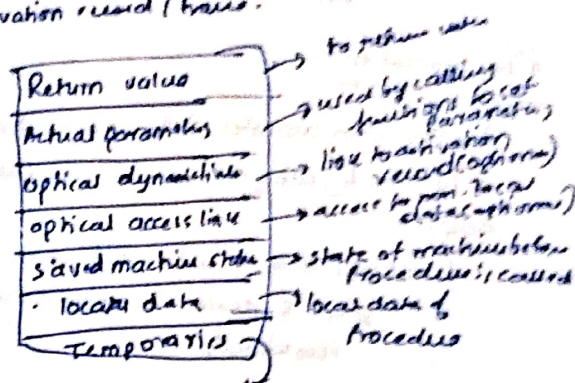 vation record / frame.
Return value → to return value
Actual parameters → used by calling
functions to set
parameters
optical dynamiclink → link to activation
record (optional)
optical access link → access to non. local
data (optional)
saved machine state → state of machine before
Procedure is called
. locals data → local data of
Procedure
Temporaries